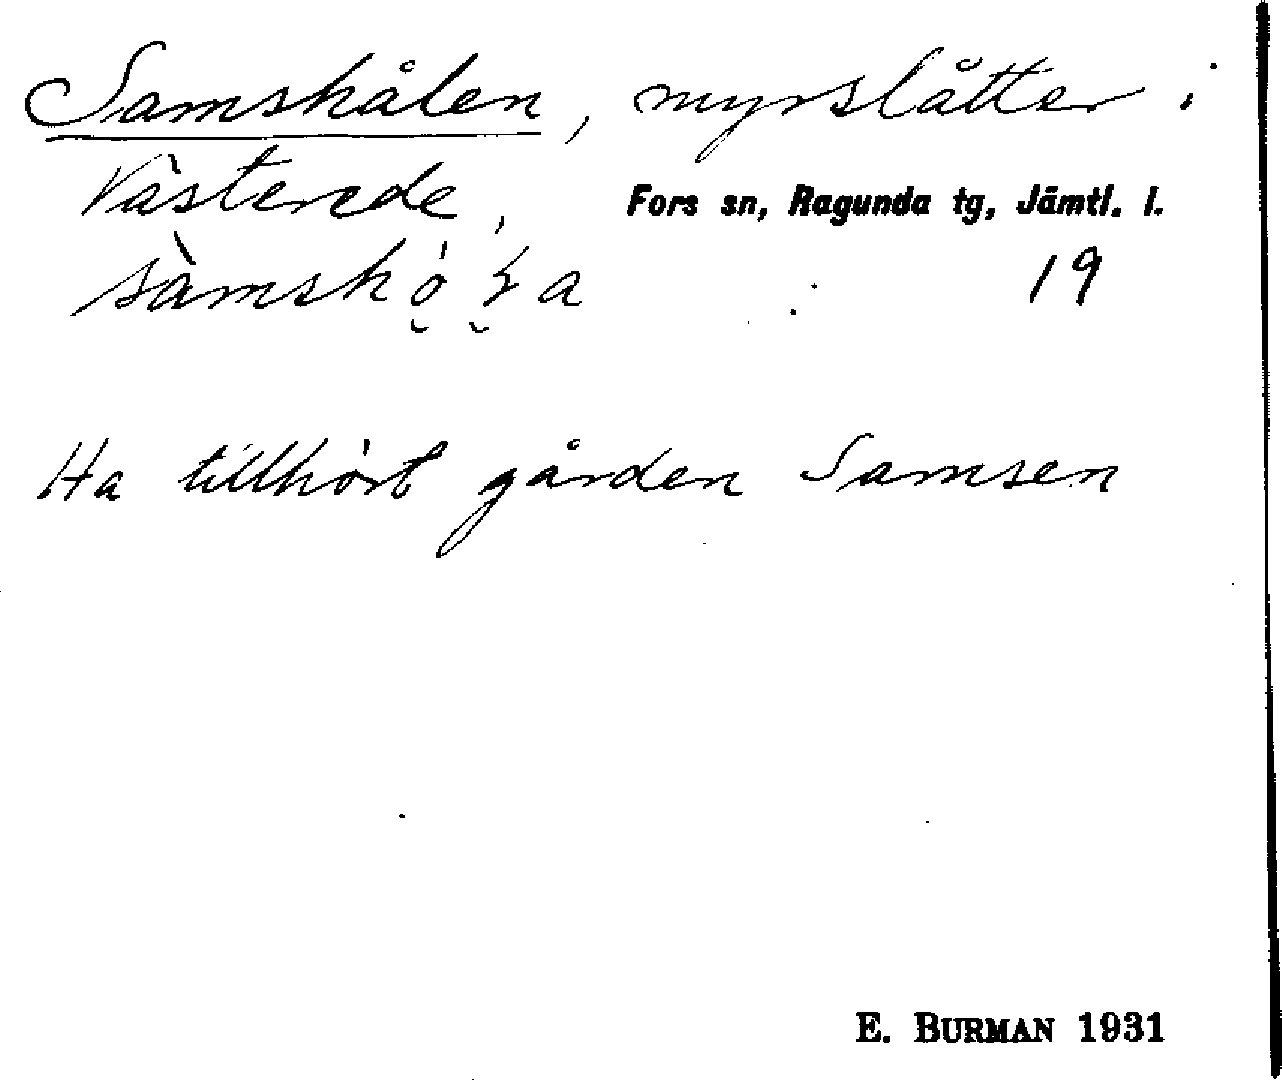 Samskålen, myrslåtter i
Västerede, Fors sn, Ragunda tg, Jämtl. l.
19
Ha tillhört gården Samsen
E. BURMAN 1931